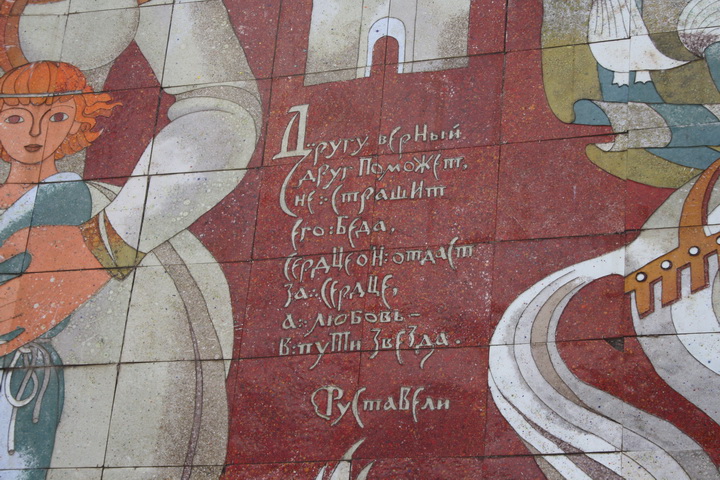 Другу верный
друг поможет,
не страшит
его беда,
сердце он отдаст
за сердце,
а любовь –
в пути звезда.
Руставели